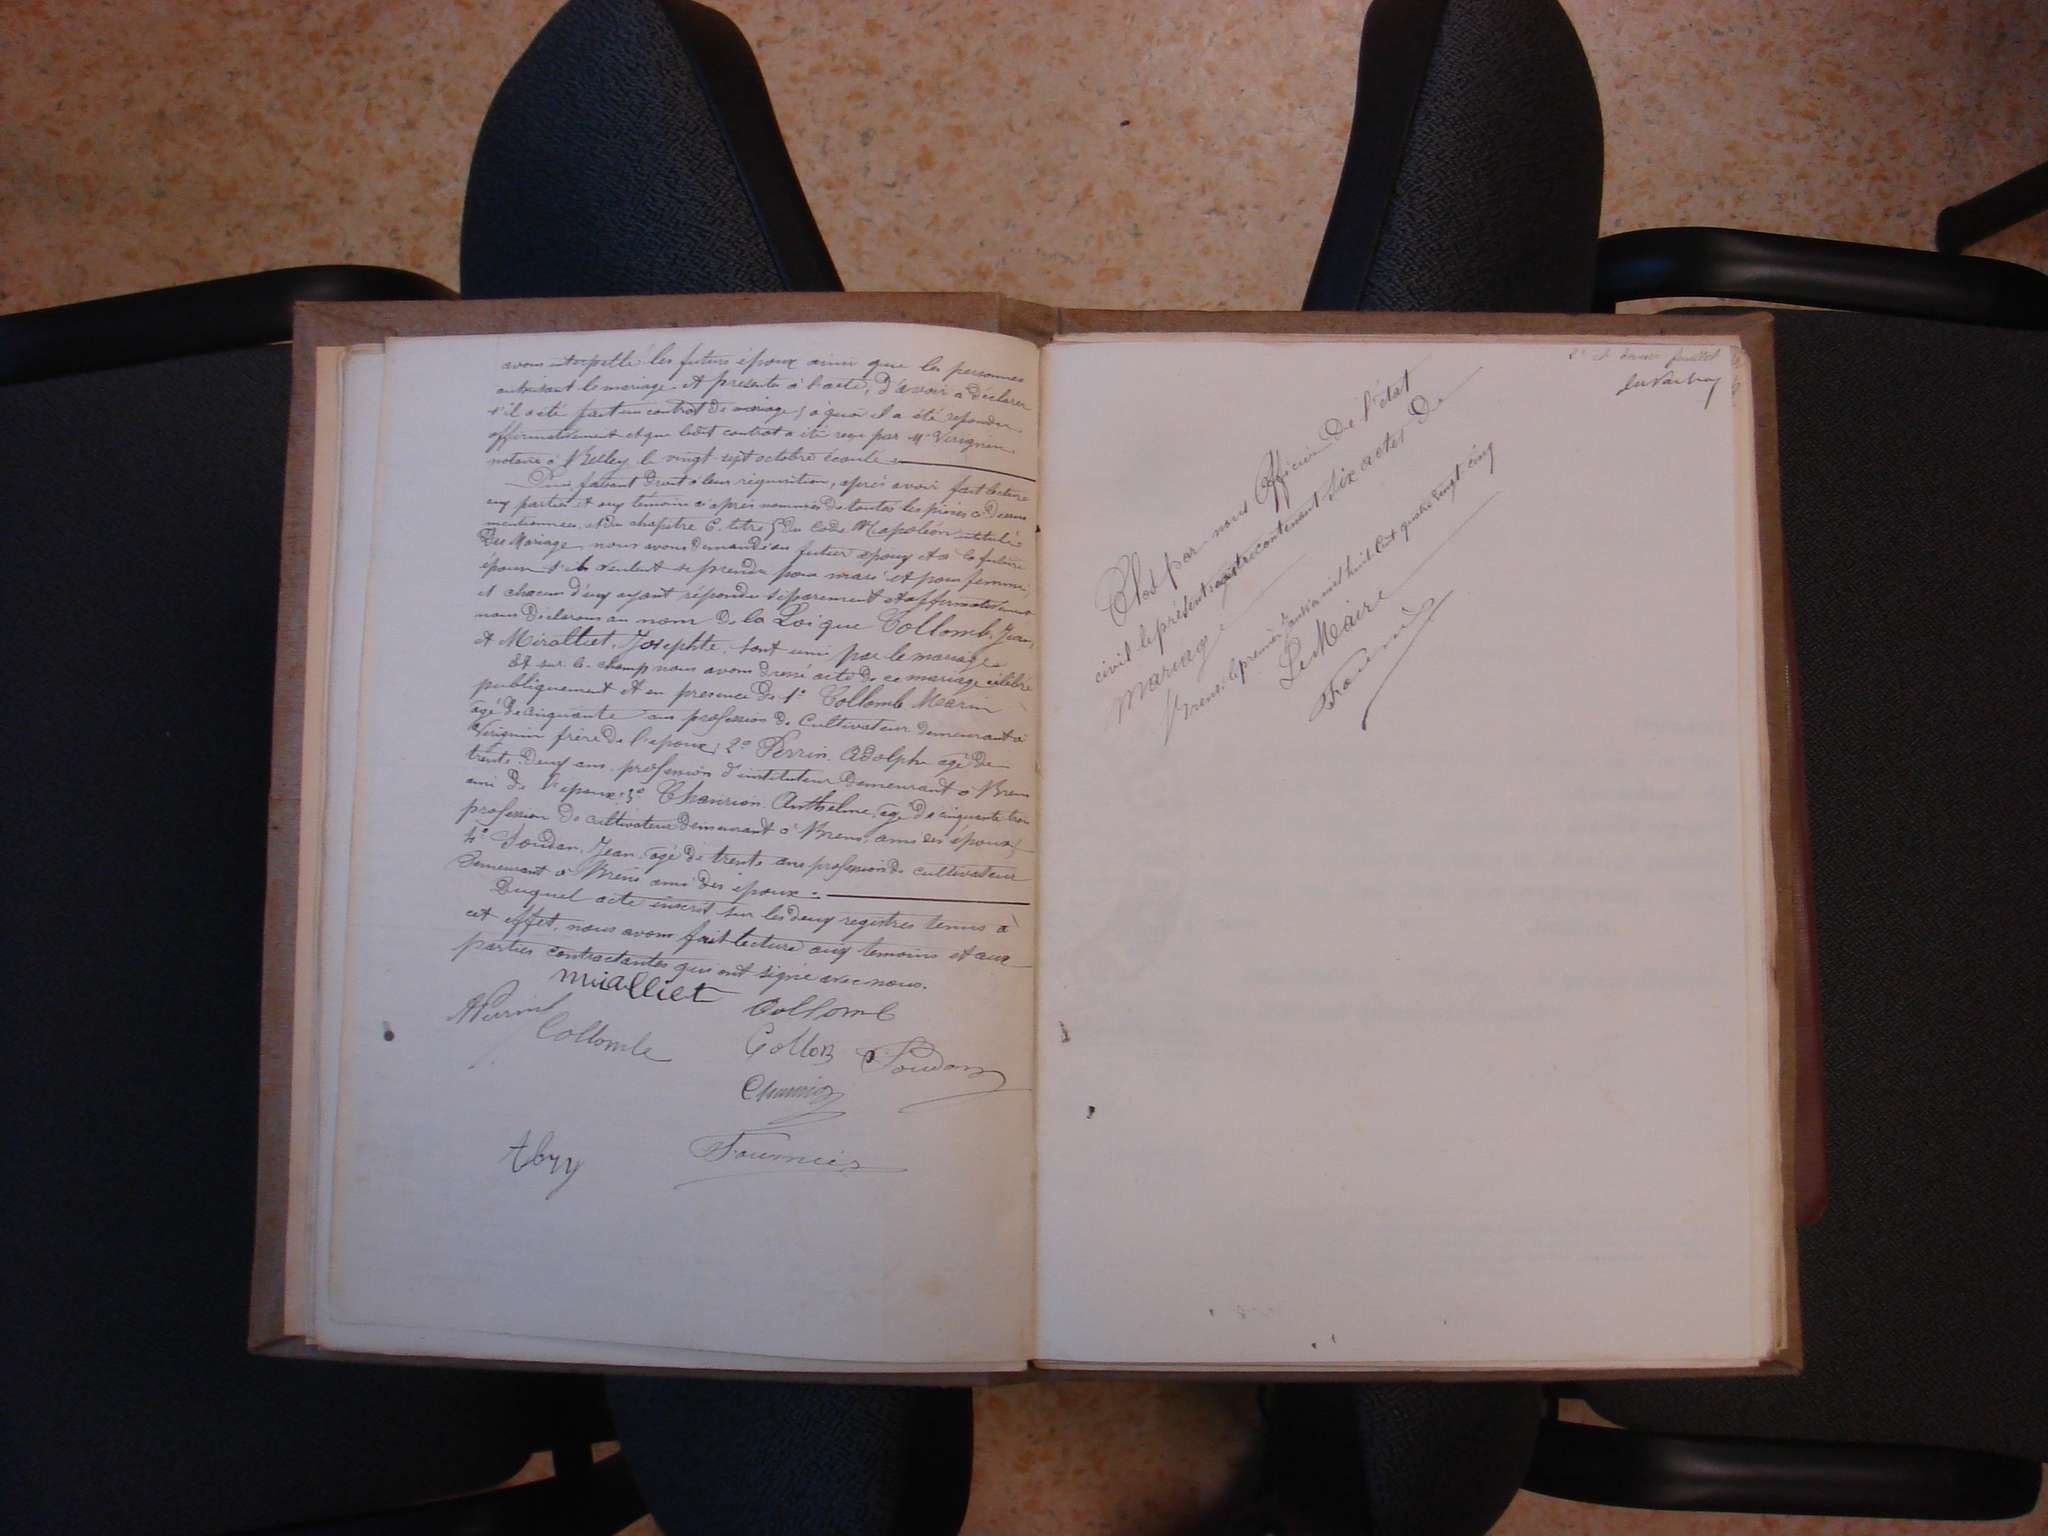 avons interpellé les futurs époux ainsi que les personnes
autorisant le mariage et présentes à l'acte, d'avoir à déclarer
s'il a été fait un contrat de mariage, à quoi il a été répondu
affirmativement et que ledit contrat a été reçu par Me
notaire à Belley le vingt-sept octobre écoulé
Puis faisant droit à leur réquisition, après avoir fait lecture
aux parties et aux témoins ci après nommés de toutes les pièces ci-dessus
mentionnées, et du chapitre 6, titre 5 du Code Napoléon intitulé
Du Mariage, nous avons demandé au futur époux et à la future
épouse s'ils veulent se prendre pour mari et pour femme,
et chacun d'eux ayant répondu séparément et affirmativement
nous déclarons au nom de la Loi que Collomb, Jean,
et Miralliet, Josephte, sont unis par le mariage
Et sur le champ nous avons dressé acte de ce mariage célébré
publiquement et en présence de 1° Collomb Marin
agé de cinquante ans profession de Cultivateur demeurant à
Virignin frère de l'époux; 2° Perrin Adolphe agé de
trente-deux ans profession d'instituteur demeurant à Brens
ami de l'époux; 3° Anthelme, agé de cinquante trois
profession de cultivateur demeurant à Brens, ami des époux;
4° Soudan, Jean, agé de trente ans profession de cultivateur
demeurant à Brens ami des époux.
Duquel acte inscrit sur les deux registres tenus à
cet effet, nous avons fait lecture aux témoins et aux
parties contractantes qui ont signé avec nous.
Miralliet
Collomb
A Perrin
Collomb
Soudan
Abry
Fournier
Clos par nous Officier de l'état
civil le présent registre contenant six actes de
Mariage
Brens, le premier Janvier mil huit cent quatre vingt cinq
Le Maire
Fournier
2e et dernier feuillet